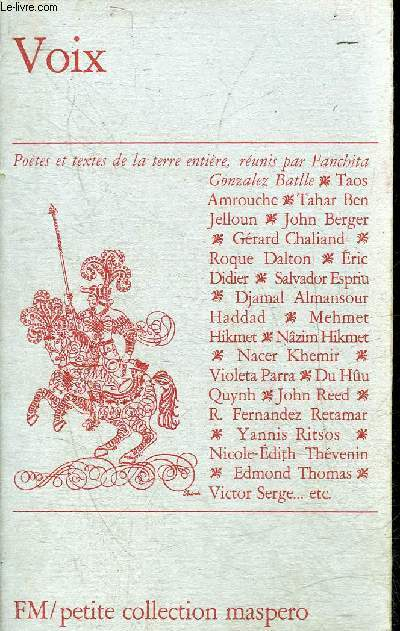 Le-livre.com
Voix
Poètes et textes de la terre entière, réunis par Fanchita
Gonzalez Batlle ❦ Taos
Amrouche ❦ Tahar Ben
Jelloun ❦ John Berger
❦ Gérard Chaliand ❦
Roque Dalton ❦ Éric
Didier ❦ Salvador Espriu
❦ Djamal Almansour
Haddad ❦ Mehmet
Hikmet ❦ Nâzim Hikmet
❦ Nacer Khemir ❦
Violeta Parra ❦ Du Hûu
Quynh ❦ John Reed ❦
R. Fernandez Retamar
❦ Yannis Ritsos ❦
Nicole-Édith Thévenin
❦ Edmond Thomas ❦
Victor Serge... etc.
FM/petite collection maspero